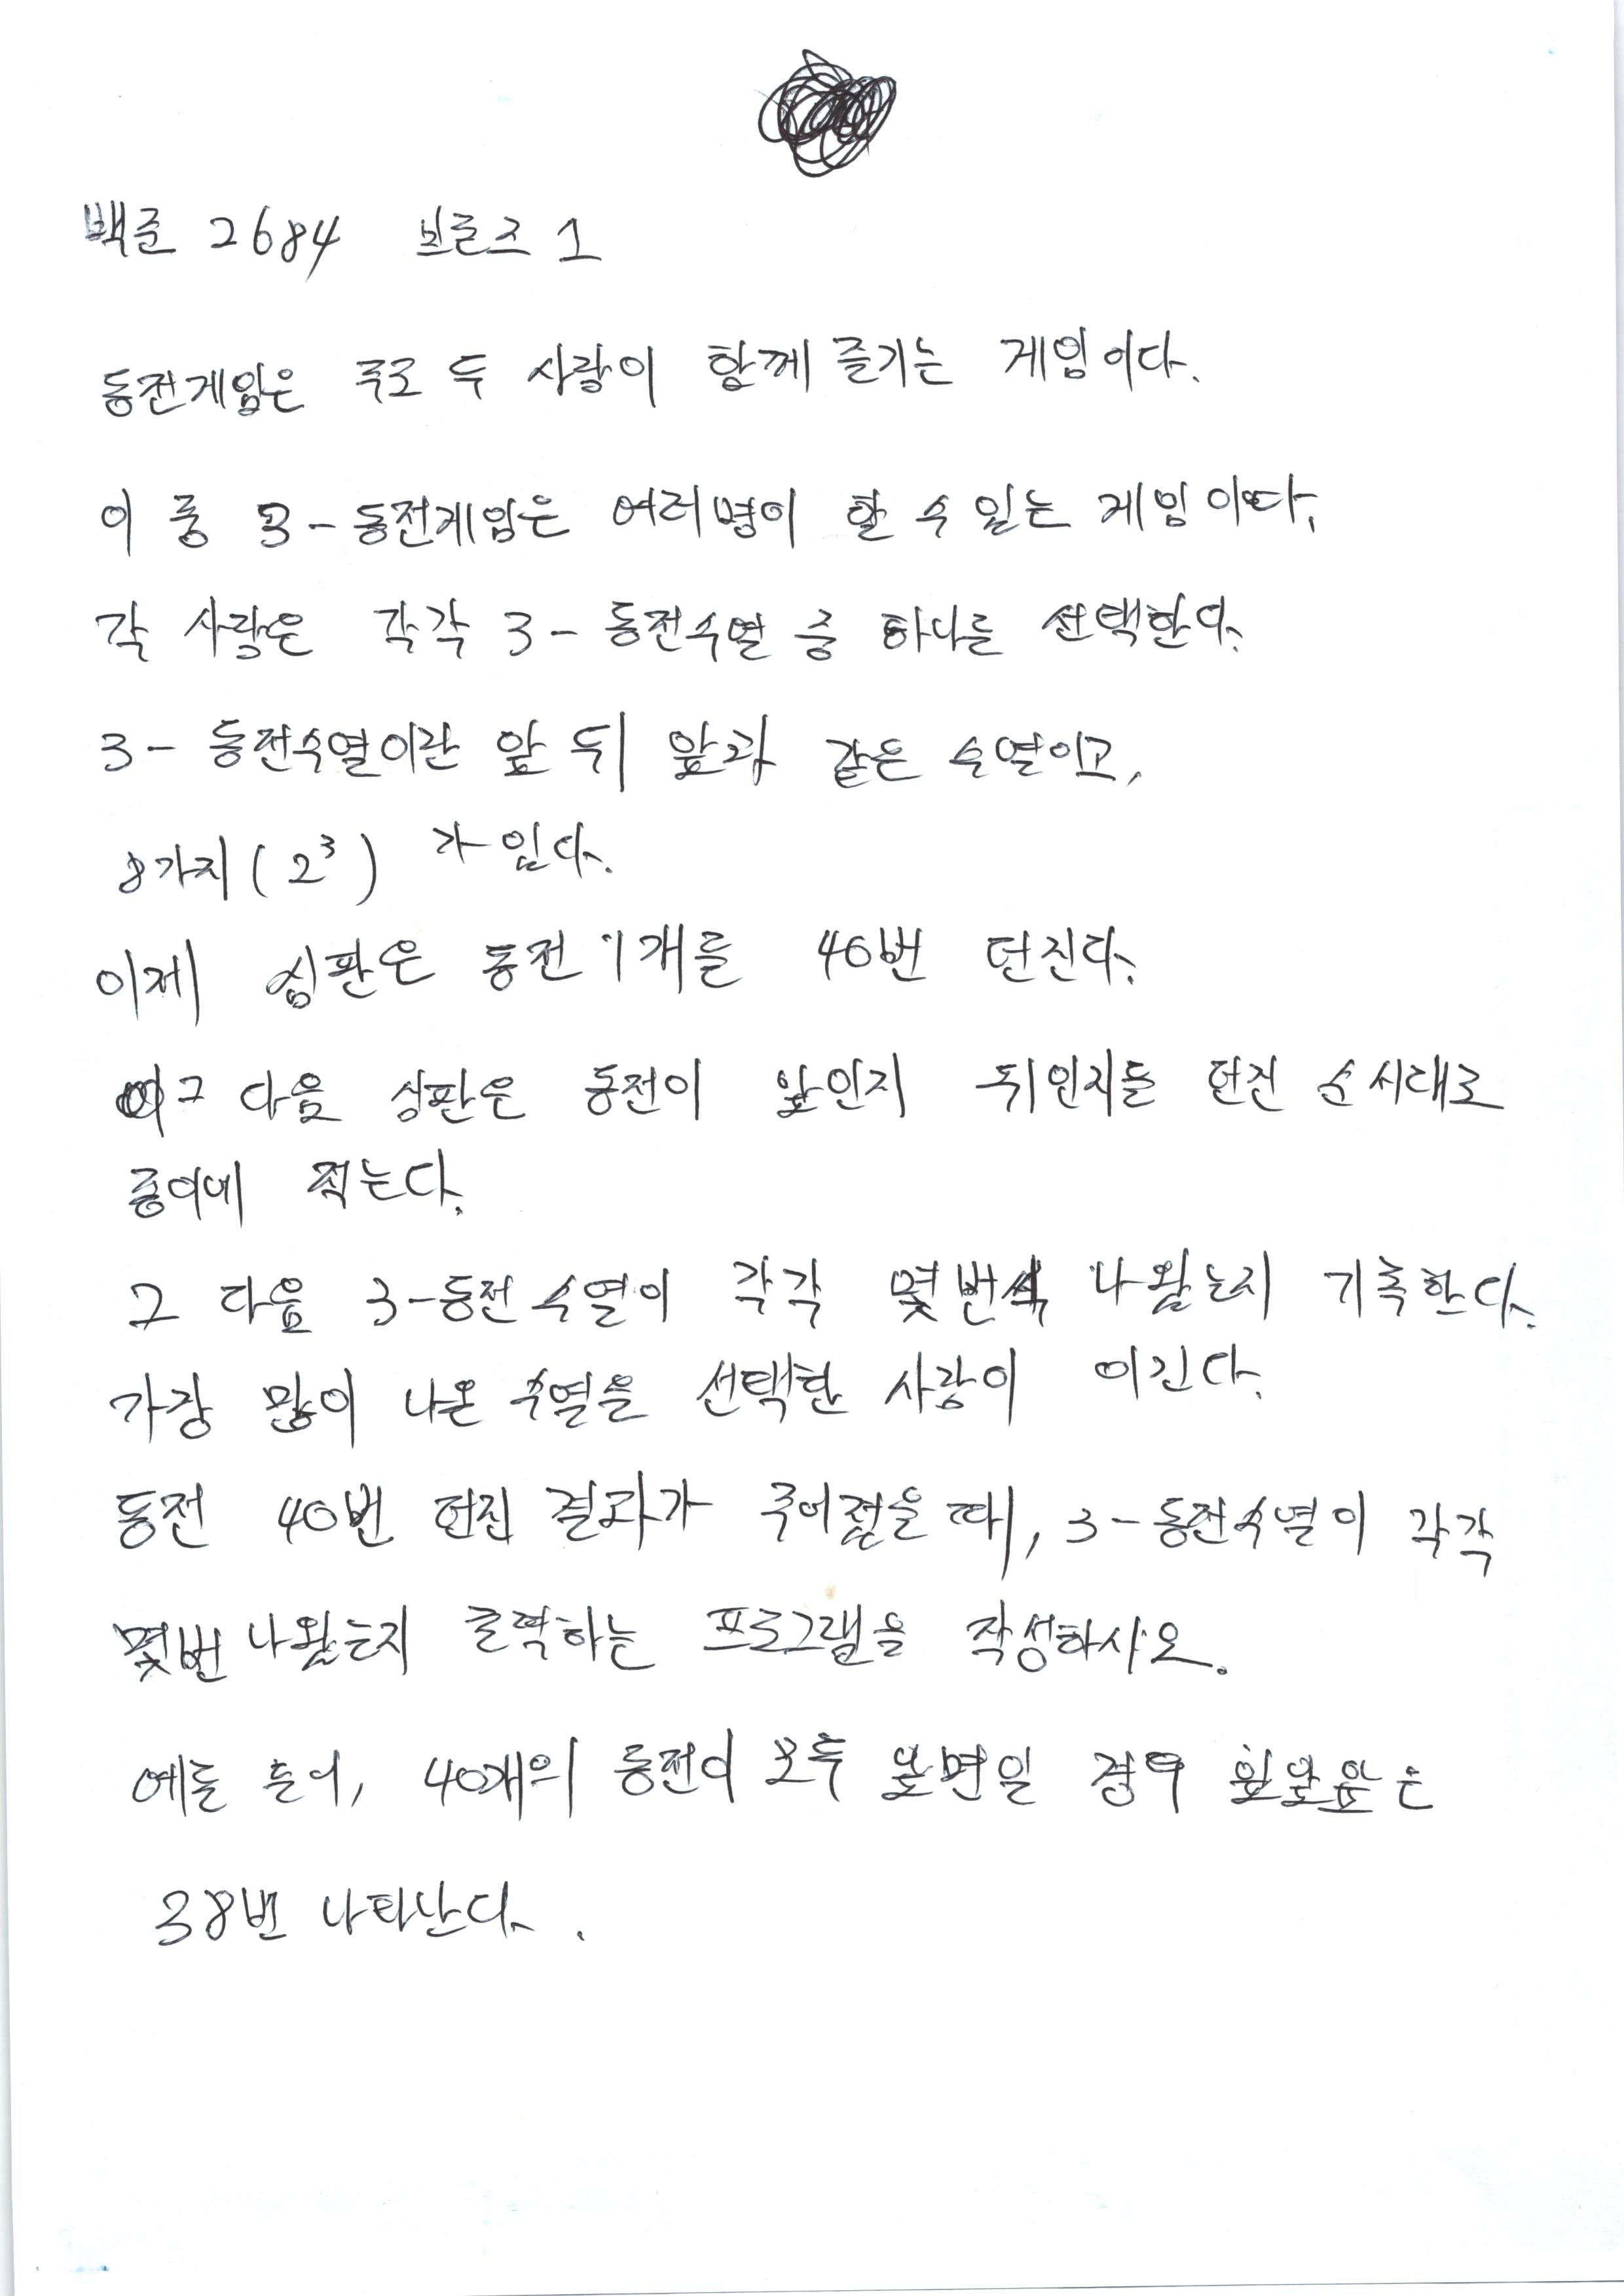 백준 2684 브론즈 1
동전게임은 주로 두 사람이 함께 즐기는 게임이다.
이 중 3-동전게임은 여러명이 할 수 있는 게임이다.
각 사람은 각각 3-동전수열 중 하나를 선택한다.
3-동전수열이란 앞 뒤 앞과 같은 수열이고,
8가지(2³)가 있다.
이제 심판은 동전 1개를 40번 던진다.
그 다음 심판은 동전이 앞인지 뒤인지를 던진 순서대로
종이에 적는다.
그 다음 3-동전수열이 각각 몇번씩 나왔는지 기록한다.
가장 많이 나온 수열을 선택한 사람이 이긴다.
동전 40번 던진 결과가 주어졌을 때, 3-동전수열이 각각
몇번 나왔는지 출력하는 프로그램을 작성하시오.
예를 들어, 40개의 동전이 모두 앞면일 경우 앞앞앞은
38번 나타난다.